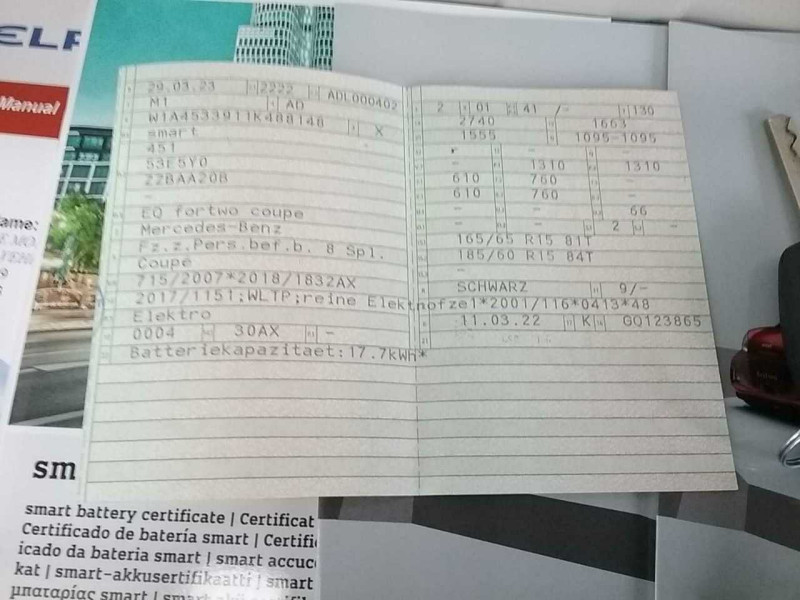 Manual
ame:
29.03.23 2222 ADL000402
M1 AD
W1A4533911K488148 X
smart
451
53E5Y0
ZZBAA20B
-
EQ fortwo coupe
Mercedes-Benz
Fz.z.Pers.bef.b. 8 Spl.
Coupe
715/2007*2018/1832AX
2017/1151;WLTP;reine Elektrofze1*2001/116*0413*48
Elektro
0004 30AX -
Batteriekapazitaet:17.7kWh*
2 01 41 /- 130
2740 1663
1555 1095-1095
- -
- 1310 1310
610 760 -
610 760 -
- - 66
- - 2 -
165/65 R15 81T
185/60 R15 84T
-
SCHWARZ 9/-
11.03.22 K GO123865
sm
smart battery certificate | Certificat
Certificado de batería smart | Certifi
icado da bateria smart | smart accuc
kat | smart-akkusertifikaatti | smart
μπαταρίας smart | smart